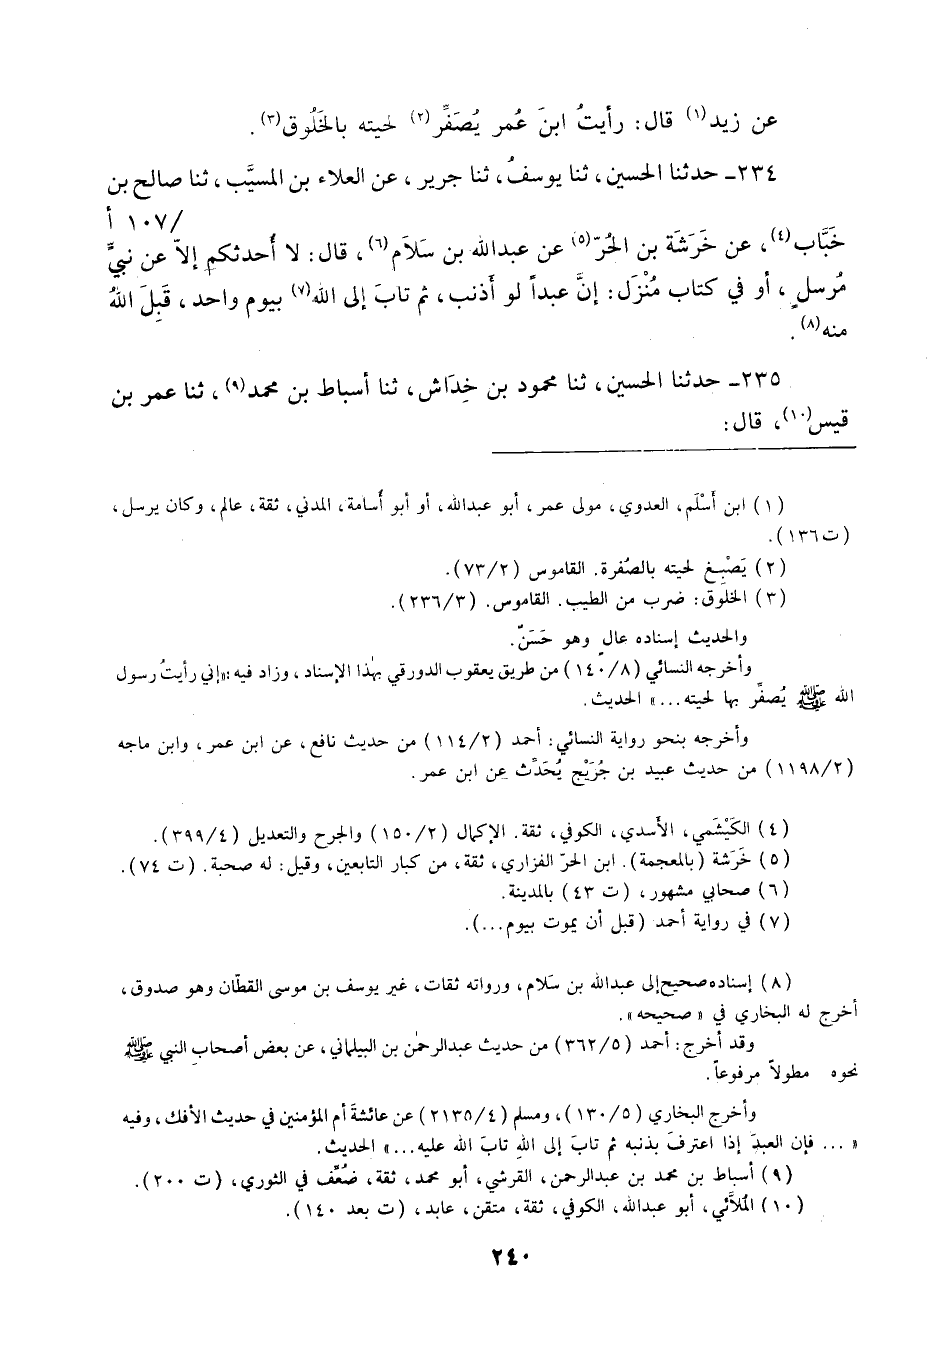 عن زيد(١) قال: رأيتُ ابنَ عُمر يُصَفِّر(٢) لحيته بالخَلُوق(٣).
٢٣٤ـ حدثنا الحسين، ثنا يوسفُ، ثنا جرير، عن العلاء بن المسيَّب، ثنا صالح بن
/١٠٧ أ
خَبَّاب(٤)، عن خَرَشَة بن الحُرّ(٥) عن عبدالله بن سَلاَم(٦)، قال: لا أُحدثكم إلاّ عن نبيٍّ
مُرسلٍ، أو في كتاب مُنْزَل: إنَّ عبداً لو أذنب، ثم تابَ إلى الله(٧) بيوم واحد، قَبِلَ اللهُ
منه(٨).
٢٣٥ـ حدثنا الحسين، ثنا محمود بن خِدَاش، ثنا أسباط بن محمد(٩)، ثنا عمر بن
قيس(١٠)، قال:
(١) ابن أَسْلَم، العدوي، مولى عمر، أبو عبدالله، أو أبو أُسامة، المدني، ثقة، عالم، وكان يرسل،
(ت١٣٦).
(٢) يَصْبِغ لحيته بالصُفرة. القاموس (٧٣/٢).
(٣) الخلوق: ضرب من الطيب. القاموس. (٢٣٦/٣).
والحديث إسناده عالٍ وهو حَسَنٌ.
وأخرجه النسائي (١٤٠/٨) من طريق يعقوب الدورقي بهٰذا الإسناد، وزاد فيه: «إني رأيتُ رسول
الله ﷺ يُصفِّر بها لحيته...» الحديث.
وأخرجه بنحو رواية النسائي: أحمد (١١٤/٢) من حديث نافع، عن ابن عمر، وابن ماجه
(١١٩٨/٢) من حديث عبيد بن جُرَيْج يُحَدِّث عن ابن عمر.
(٤) الكَيْشَمي، الأسدي، الكوفي، ثقة. الإكمال (١٥٠/٢) والجرح والتعديل (٣٩٩/٤).
(٥) خَرَشة (بالمعجمة). ابن الحرّ الفزاري، ثقة، من كبار التابعين، وقيل: له صحبة. (ت ٧٤).
(٦) صحابي مشهور، (ت ٤٣) بالمدينة.
(٧) في رواية أحمد (قبل أن يموت بيوم...).
(٨) إسناده صحيح إلى عبدالله بن سَلام، ورواته ثقات، غير يوسف بن موسى القطّان وهو صدوق،
أخرج له البخاري في «صحيحه».
وقد أخرج: أحمد (٣٦٢/٥) من حديث عبدالرحمٰن بن البيلماني، عن بعض أصحاب النبي ﷺ
نحوه مطولاً مرفوعاً.
وأخرج البخاري (١٣٠/٥)، ومسلم (٢١٣٥/٤) عن عائشةَ أم المؤمنين في حديث الأفك، وفيه
«... فإن العبدَ إذا اعترفَ بذنبه ثم تابَ إلى اللهِ تابَ الله عليه...» الحديث.
(٩) أسباط بن محمد بن عبدالرحمن، القرشي، أبو محمد، ثقة، ضُعِّف في الثوري، (ت ٢٠٠).
(١٠) المُلَائي، أبو عبدالله، الكوفي، ثقة، متقن، عابد، (ت بعد ١٤٠).
٢٤٠